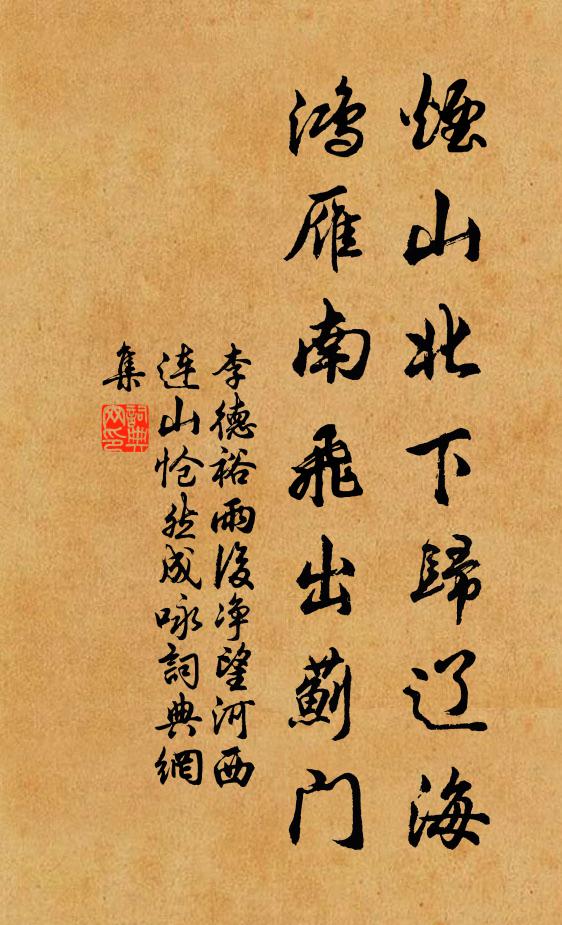 煙山北下歸辽海
鴻雁南飛出薊门
李德裕雨後净望河西
連山怆然成咏詞典網
集
詞典網印